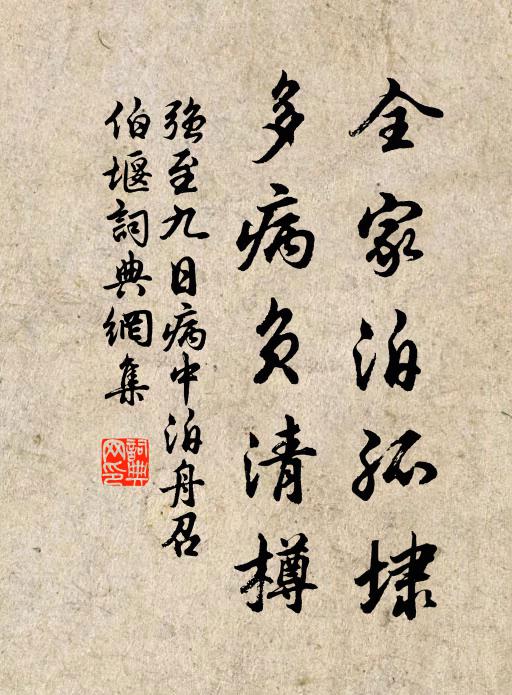 全家泊孤埭
多病负清樽
强至九日病中泊舟召
伯堰詞典網集
詞典网印